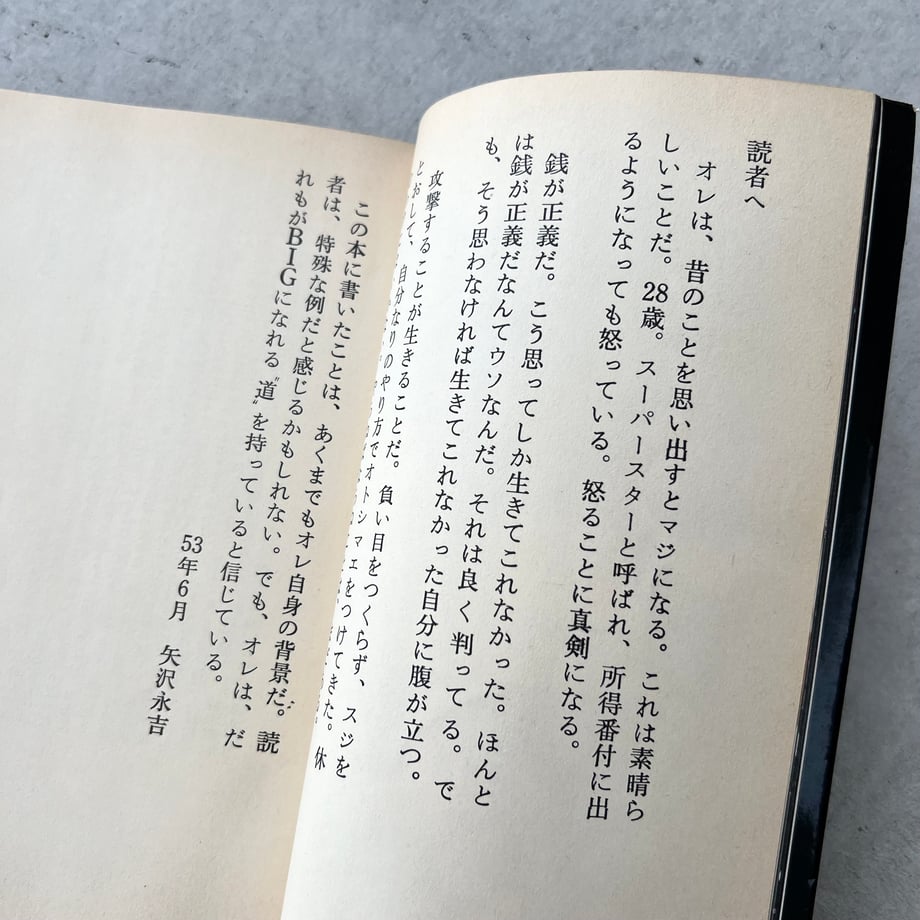 読者へ
オレは、昔のことを思い出すとマジになる。これは素晴ら
しいことだ。28歳。スーパースターと呼ばれ、所得番付に出
るようになっても怒っている。怒ることに真剣になる。
銭が正義だ。こう思ってしか生きてこれなかった。ほんと
は銭が正義だなんてウソなんだ。それは良く判ってる。で
も、そう思わなければ生きてこれなかった自分に腹が立つ。
攻撃することが生きることだ。負い目をつくらず、スジを
とおして、自分なりのやり方でオトシマエをつけてきた。休
この本に書いたことは、あくまでもオレ自身の背景だ。読
者は、特殊な例だと感じるかもしれない。でも、オレは、だ
れもがBIGになれる〝道〟を持っていると信じている。
53年6月 矢沢永吉